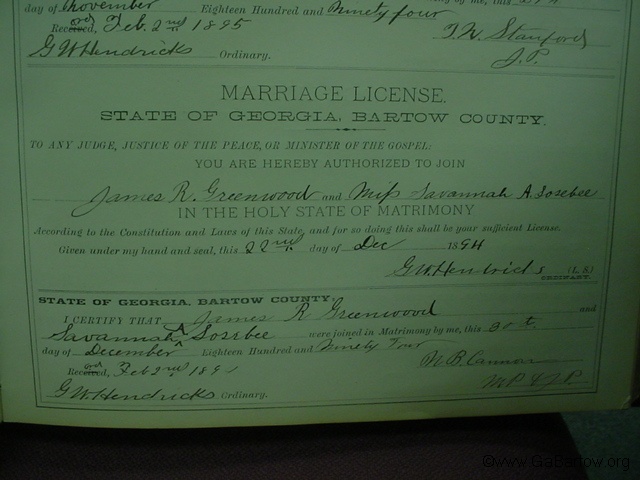 day of November Eighteen Hundred and Ninety four
Received, Feb. 2nd 1895 T. W. Stanford
GW Hendricks Ordinary. J.P.
MARRIAGE LICENSE.
STATE OF GEORGIA, BARTOW COUNTY.
TO ANY JUDGE, JUSTICE OF THE PEACE, OR MINISTER OF THE GOSPEL:
YOU ARE HEREBY AUTHORIZED TO JOIN
James R. Greenwood and Miss Savannah A. Sosebee
IN THE HOLY STATE OF MATRIMONY
According to the Constitution and Laws of this State, and for so doing this shall be your sufficient License.
Given under my hand and seal, this 22nd day of Dec 1894
GW Hendricks (L. S.)
ORDINARY.
STATE OF GEORGIA, BARTOW COUNTY,
I CERTIFY THAT James R Greenwood and
Savannah A Sosebee were joined in Matrimony by me, this
day of December Eighteen Hundred and Ninety Four
Received, Feb 2nd 189 N. B. Cannon
GW. Hendricks Ordinary.
©www.GaBartow.org